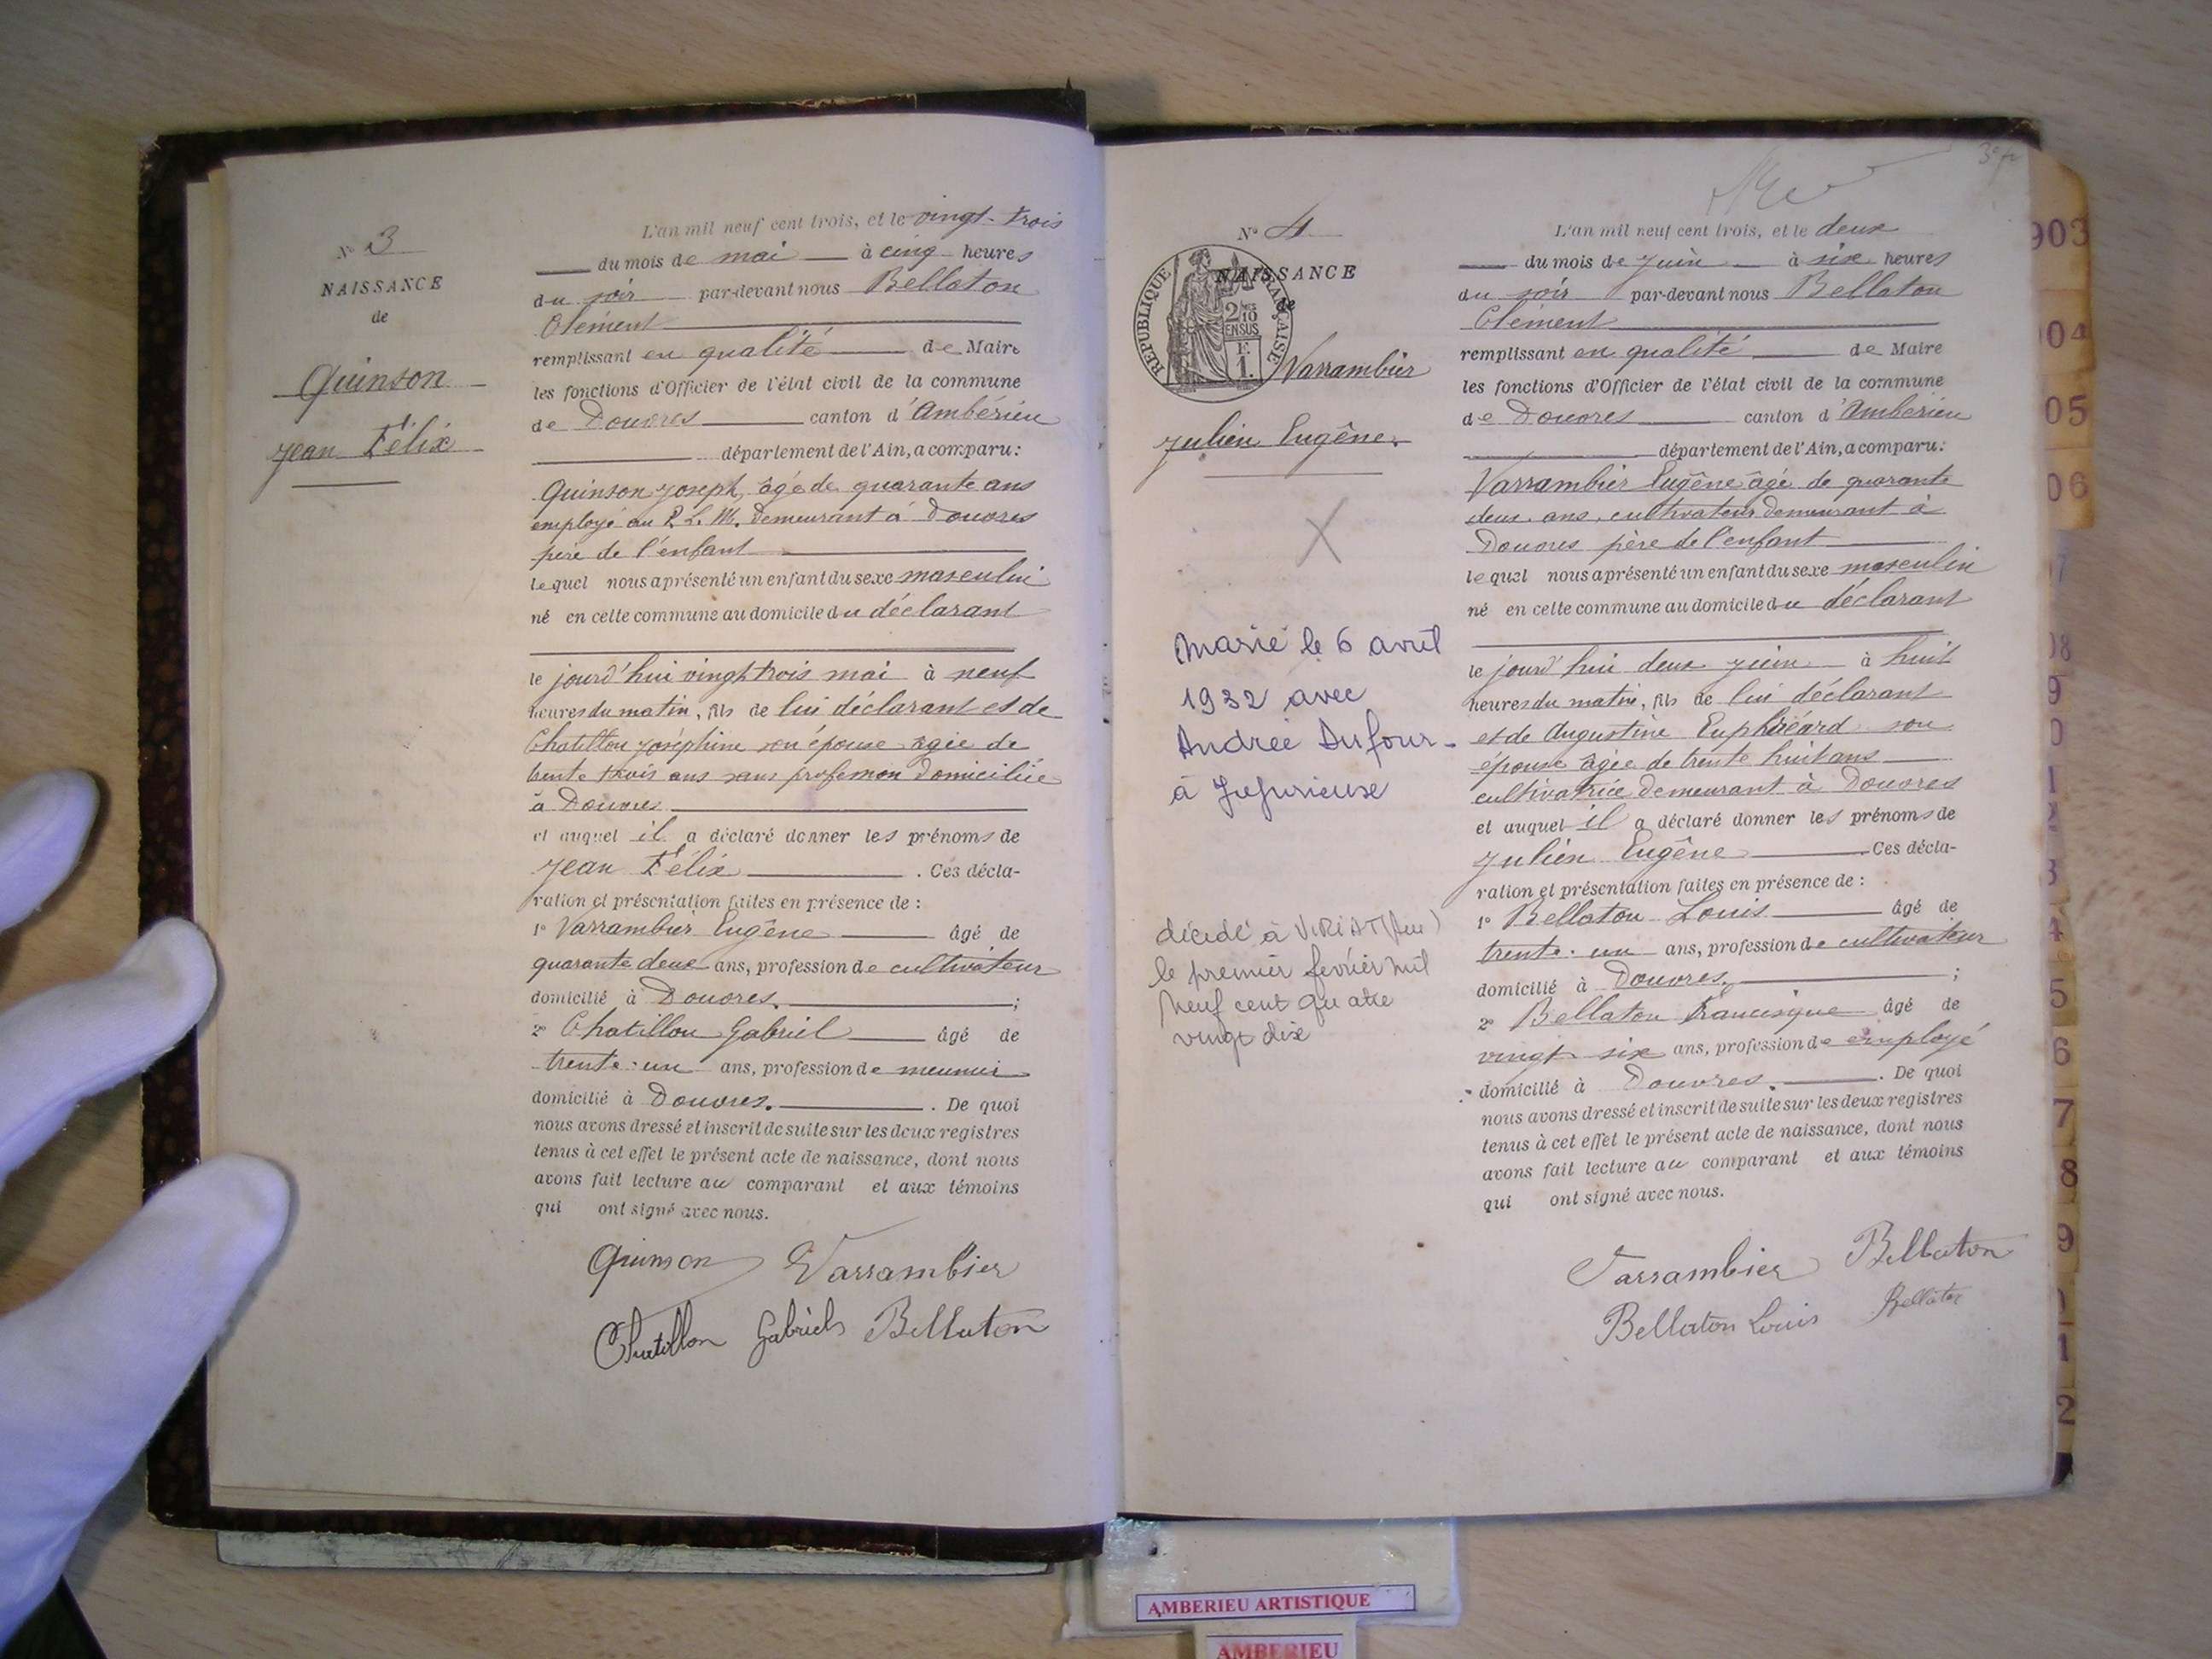 N° 3
NAISSANCE
de
Quinson
Jean Félix
L'an mil neuf cent trois, et le vingt-trois
du mois de mai à cinq heures
du soir par-devant nous Bellaton
Clément
remplissant en qualité de Maire
les fonctions d'Officier de l'état civil de la commune
de Douvres canton d'Ambérieu
département de l'Ain, a comparu:
Quinson Joseph, âgé de quarante ans
employé au P. L. M. demeurant à Douvres
père de l'enfant
lequel nous a présenté un enfant du sexe masculin
né en cette commune au domicile du déclarant
le jourd'hui vingt trois mai à neuf
heures du matin, fils de lui déclarant et de
Chatillon Joséphine son épouse âgée de
trente trois ans sans profession domiciliée
à Douvres
et auquel il a déclaré donner les prénoms de
Jean Félix . Ces décla-
ration et présentation faites en présence de :
1° Varrambier Eugène âgé de
quarante deux ans, profession de cultivateur
domicilié à Douvres. ;
2° Chatillon Gabriel âgé de
trente-un ans, profession de meunier
domicilié à Douvres. . De quoi
nous avons dressé et inscrit de suite sur les deux registres
tenus à cet effet le présent acte de naissance, dont nous
avons fait lecture au comparant et aux témoins
qui ont signé avec nous.
Quinson Varrambier
Chatillon Gabriel Bellaton
N° 4
NAISSANCE
de
REPUBLIQUE FRANÇAISE
2/10 EN SUS
F.
1.
Varrambier
Julien Eugène.
X
Marié le 6 avril
1932 avec
Andrée Dufour-
à Jujurieux
décédé à VIRIAT (Ain)
le premier février mil
neuf cent quatre
vingt dix
3e
L'an mil neuf cent trois, et le deux
du mois de Juin à six heures
du soir par-devant nous Bellaton
Clément
remplissant en qualité de Maire
les fonctions d'Officier de l'état civil de la commune
de Douvres canton d'Ambérieu
département de l'Ain, a comparu:
Varrambier Eugène âgé de quarante
deux ans, cultivateur demeurant à
Douvres père de l'enfant
lequel nous a présenté un enfant du sexe masculin
né en cette commune au domicile du déclarant
le jourd'hui deux juin à huit
heures du matin, fils de lui déclarant
et de Augustine son
épouse âgée de trente huit ans
cultivatrice demeurant à Douvres
et auquel il a déclaré donner les prénoms de
Julien Eugène . Ces décla-
ration et présentation faites en présence de :
1° Bellaton Louis âgé de
trente-un ans, profession de cultivateur
domicilié à Douvres. ;
2° Bellaton Francisque âgé de
vingt-six ans, profession de employé
domicilié à Douvres. . De quoi
nous avons dressé et inscrit de suite sur les deux registres
tenus à cet effet le présent acte de naissance, dont nous
avons fait lecture au comparant et aux témoins
qui ont signé avec nous.
Varrambier Bellaton
Bellaton Louis Bellaton
903
04
05
06
7
08
9
0
1
2
3
4
5
6
7
8
9
1
2
AMBERIEU ARTISTIQUE
AMBERIEU